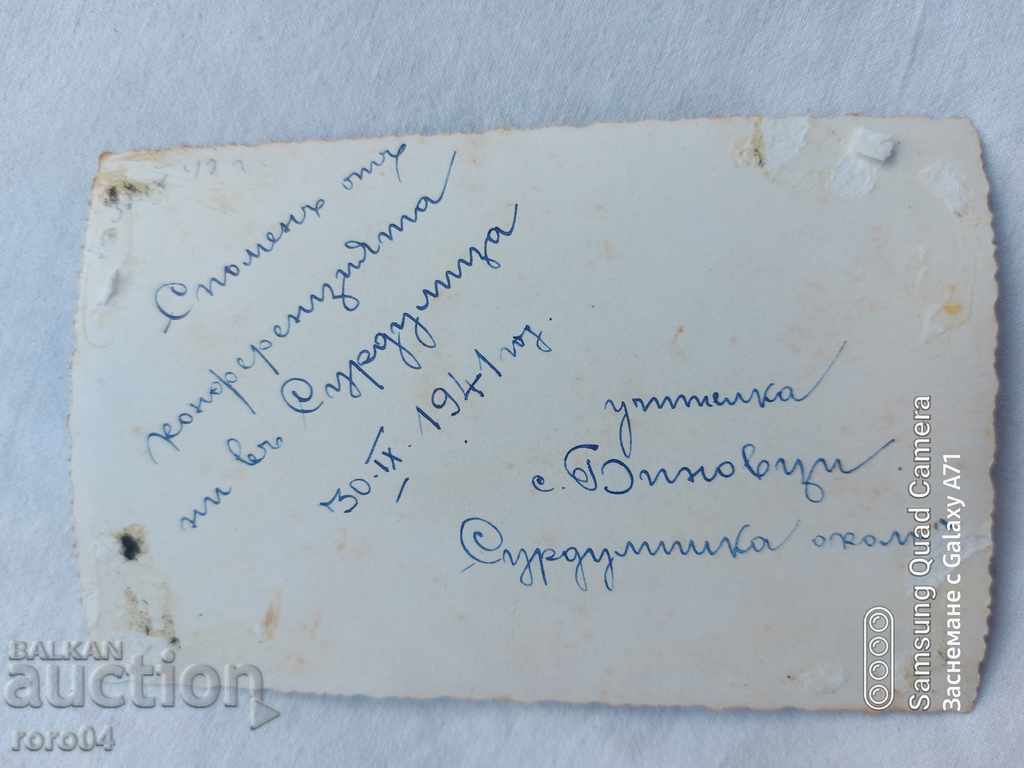 Споменъ отъ
конференцията
ни въ Сурдулица
30.IX.1941 год.
учителка
с. Биновци
Сурдулишка окол
BALKAN
auction
roro04
Samsung Quad Camera
Заснемане с Galaxy A71